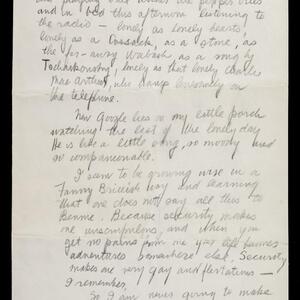 and in bed this afternoon listening to
the radio – lonely as lonely hearts,
lonely as a Cossack, as a stone, as
the far-away Wabash, as a song by
Tschaikowsky, lonely as that lonely Charles
Mac Arthur, who hangs
the telephone.
Now Google lies on my little porch
watching the last of the lonely day
He is like a little song, so moody and
so companionable.
I seem to be growing wise in a
Fanny Brice-ish way and learning
that one does not say all this to
Bennie. Because security makes
me unscrupulous, and when you
get no pains from me you
adventures somewhere else. Security
makes me very gay and flirtatious –
I remember.
So I am never going to make